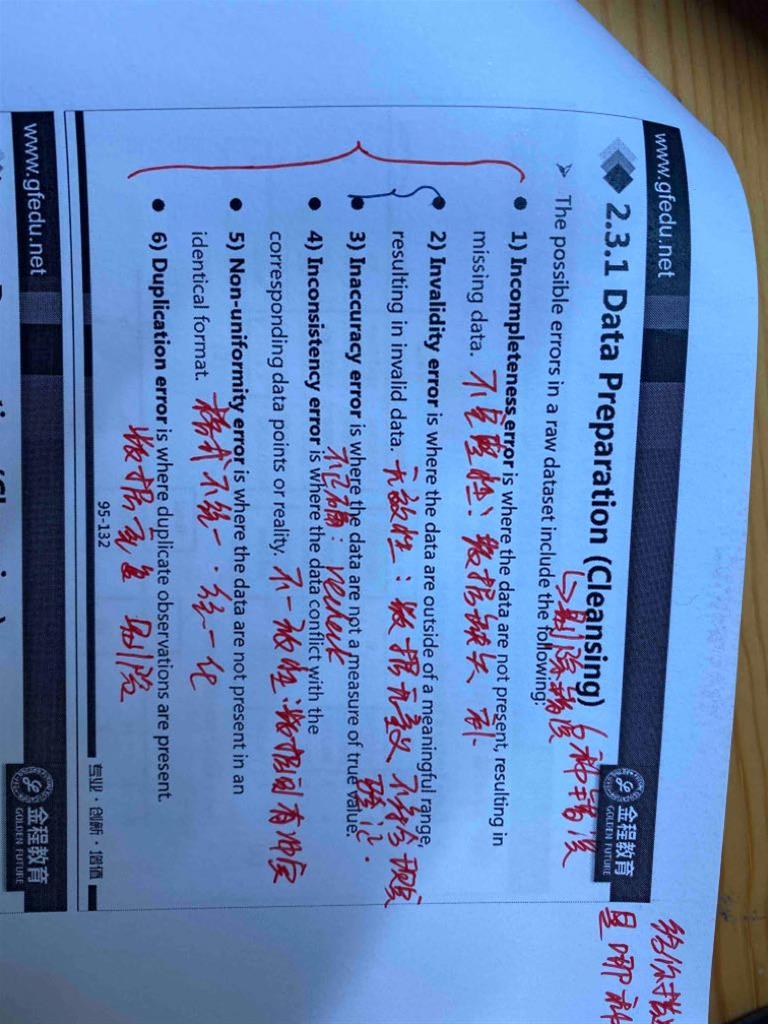 www.gfedu.net
金程教育
GOLDEN FUTURE
给你描
是哪种
2.3.1 Data Preparation (Cleansing) 6种错误
↳剔除错误
➢ The possible errors in a raw dataset include the following:
● 1) Incompleteness error is where the data are not present, resulting in
missing data. 不完整性：数据缺失
● 2) Invalidity error is where the data are outside of a meaningful range,
resulting in invalid data. 无效性：数据无意义 不符合现实
验证.
● 3) Inaccuracy error is where the data are not a measure of true value.
不正确：recheck
● 4) Inconsistency error is where the data conflict with the
corresponding data points or reality. 不一致性：数据间有冲突
● 5) Non-uniformity error is where the data are not present in an
identical format. 格式不统一.统一化
● 6) Duplication error is where duplicate observations are present.
数据重复 剔除
95-132
专业·创新·增值
www.gfedu.net
金程教育
GOLDEN FUTURE